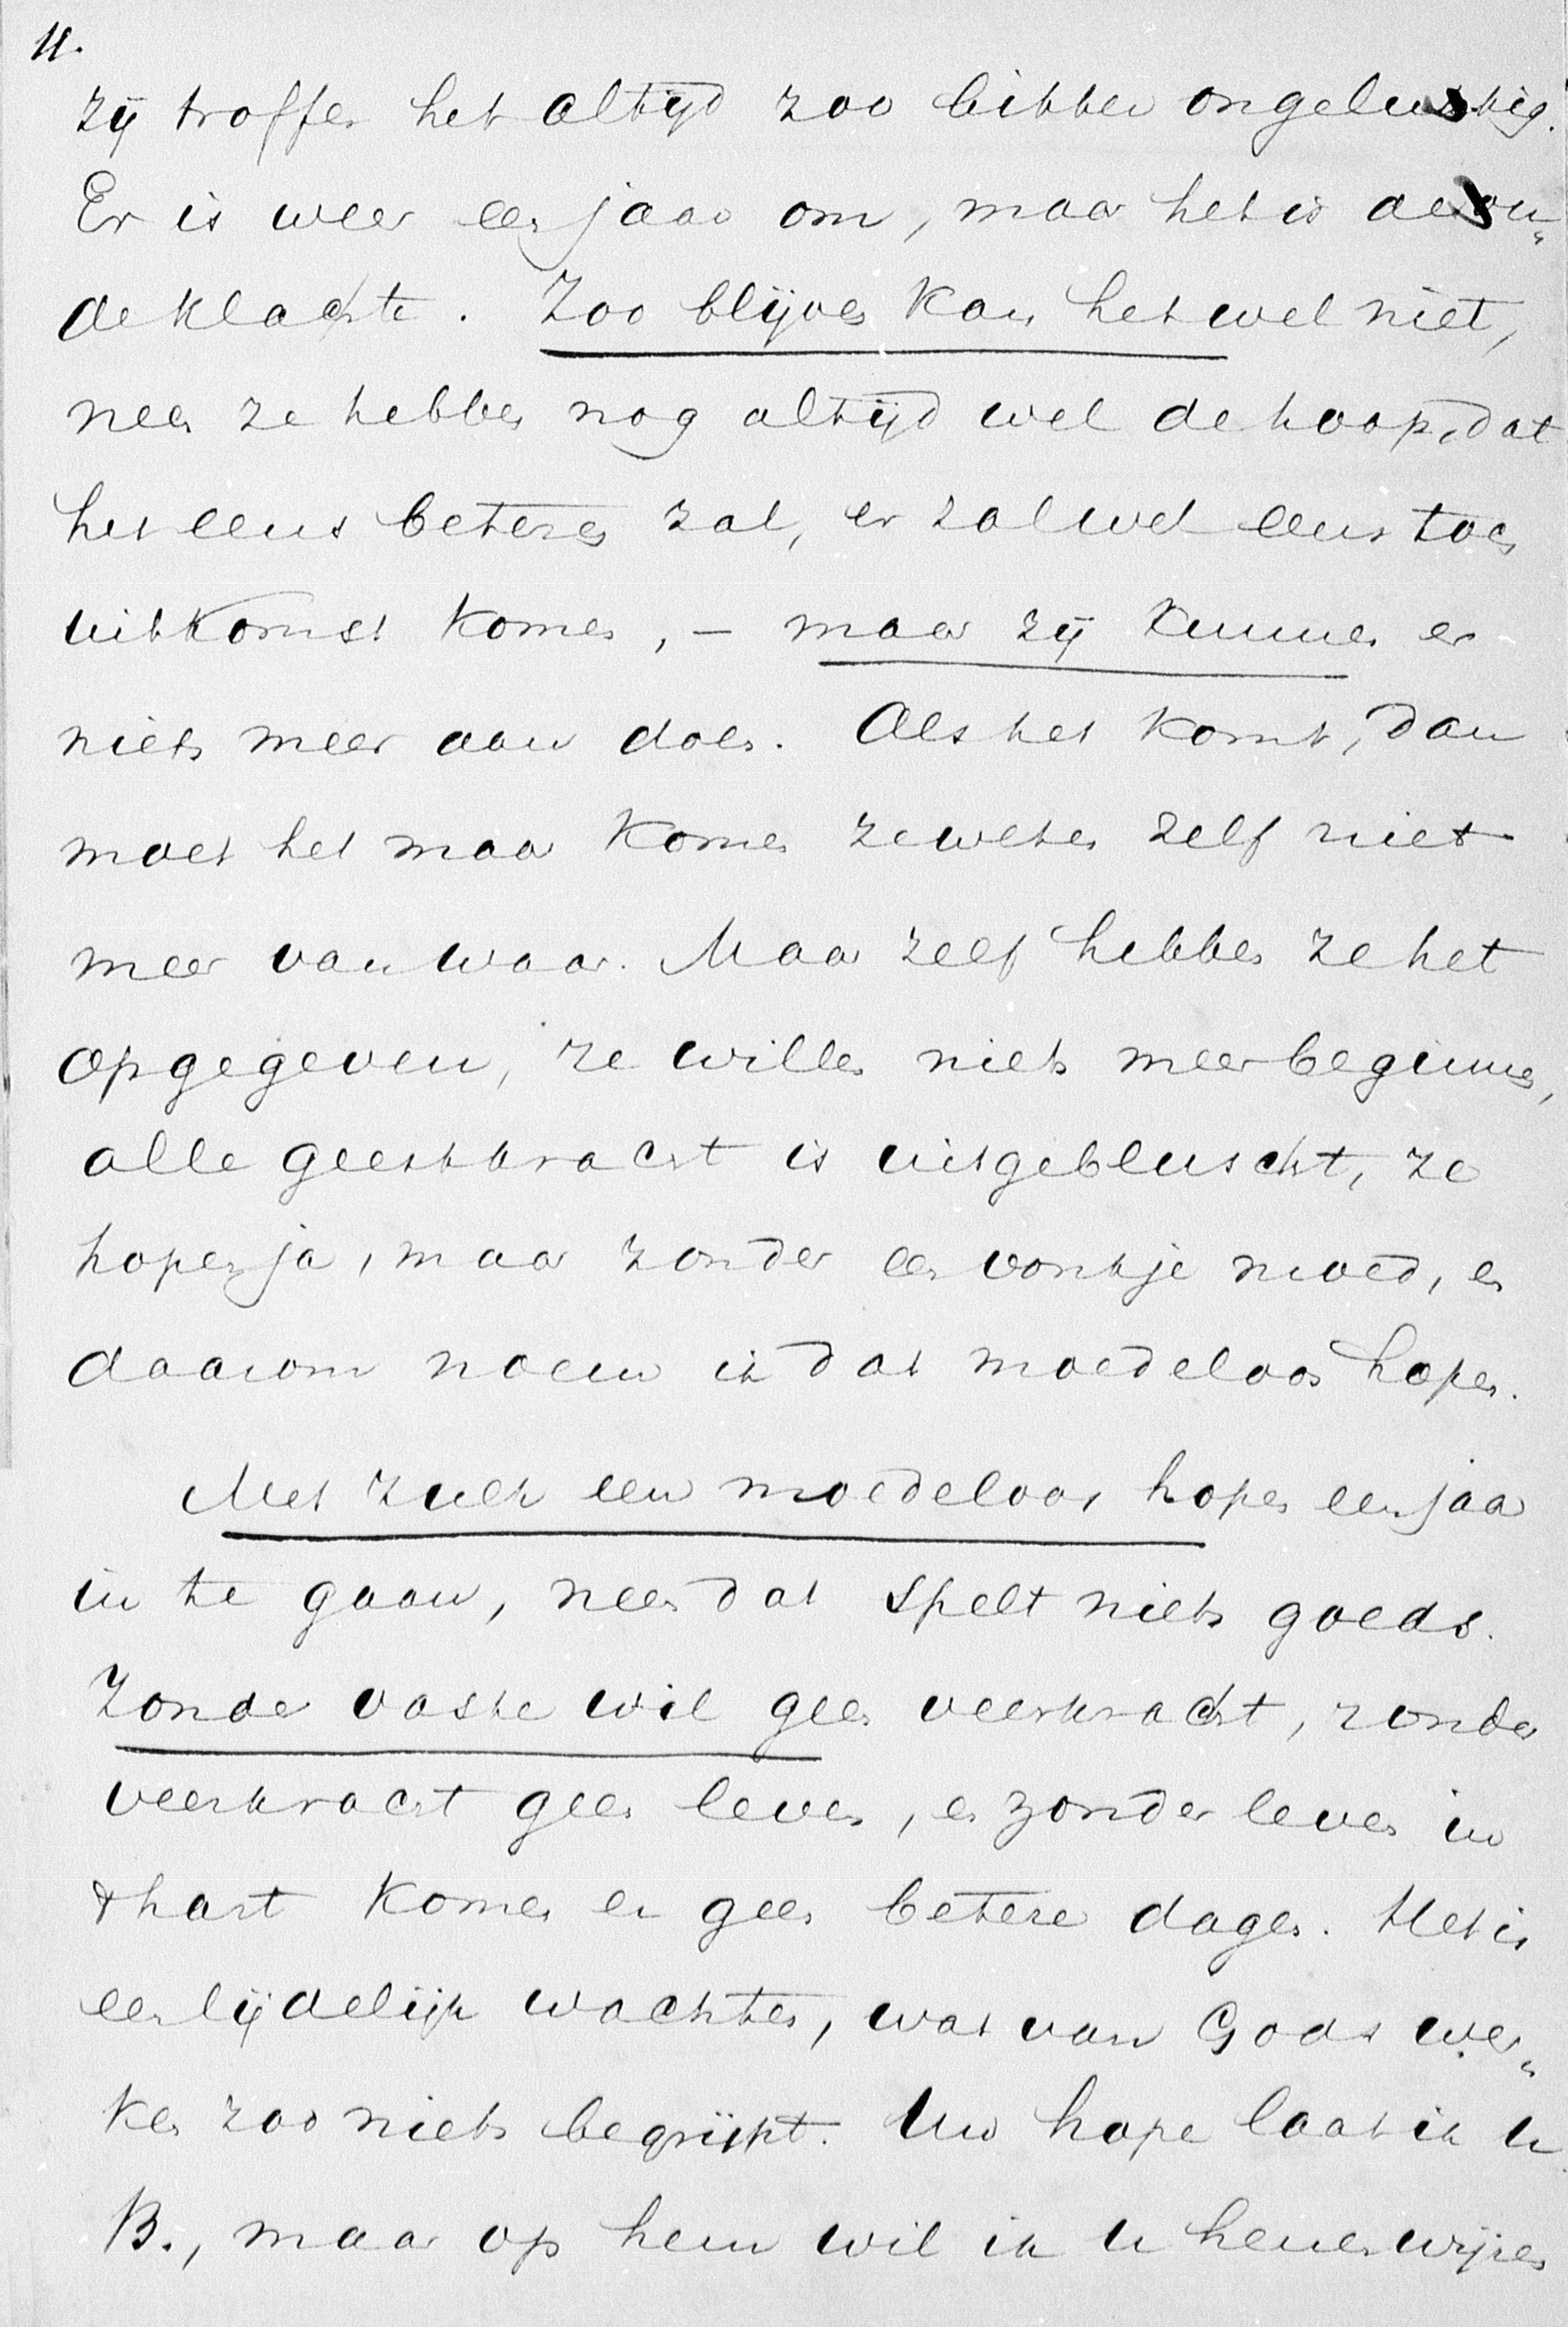 11.
zij troffen het altijd zoo bitter ongelukkig.
Er is weer een jaar om, maar het is de ou„
de klachte. Zoo blijven kan het wel niet,
neen ze hebben nog altijd wel de hoop, dat
het eens beteren zal, er zal wel eens toch
uitkomst komen, – maar zij kunnen er
niets meer aan doen. Als het komt, dan
moet het maar komen ze weten zelf niet
meer van waar. Maar zelf hebben ze het
opgegeven, ze willen niets meer beginnen,
alle geestkracht is uitgebluscht, ze
hopen ja, maar zonder een vonkje moed, en
daarom noem ik dat moedeloos hopen.
Met zulk een moedeloos hopen een jaar
in te gaan, neen dat spelt niets goeds.
Zonder vaste wil geen veerkracht, zonder
veerkracht geen leven, en zonder leven in
't hart komen er geen betere dagen. Het is
een lijdelijk wachten, wat van Gods wer„
ken zoo niets begrijpt. Uw hope laat ik u
B., maar op hem wil ik u henenwijzen